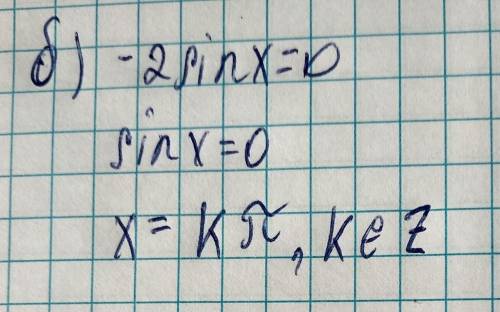 б) -2sinx=0
sinx=0
x= kπ, k∈Z